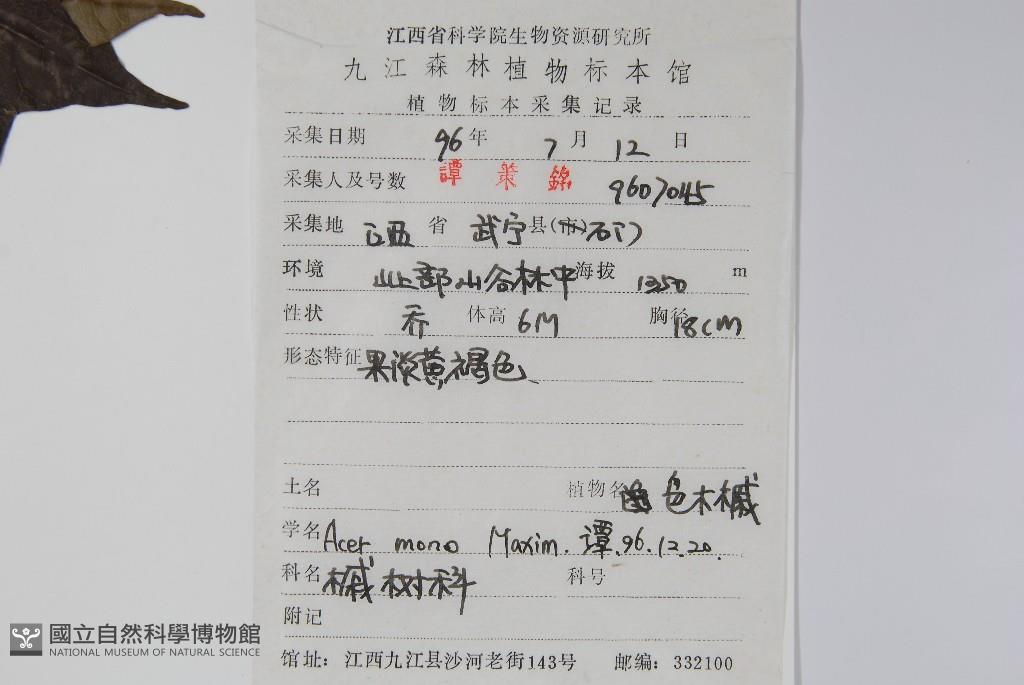 江西省科学院生物资源研究所
九江森林植物标本馆
植物标本采集记录
采集日期 96年 7月 12日
采集人及号数 譚策銘 9607045
采集地 江西省 武宁县(市)石门
环境 山上部山谷林中 海拔 1350 m
性状 乔 体高 6M 胸径 18cm
形态特征 果淡黄褐色
土名 植物名 色木槭
学名 Acer mono Maxim. 谭.96.12.20.
科名 槭树科 科号
附记
馆址：江西九江县沙河老街143号 邮编：332100
國立自然科學博物館
NATIONAL MUSEUM OF NATURAL SCIENCE